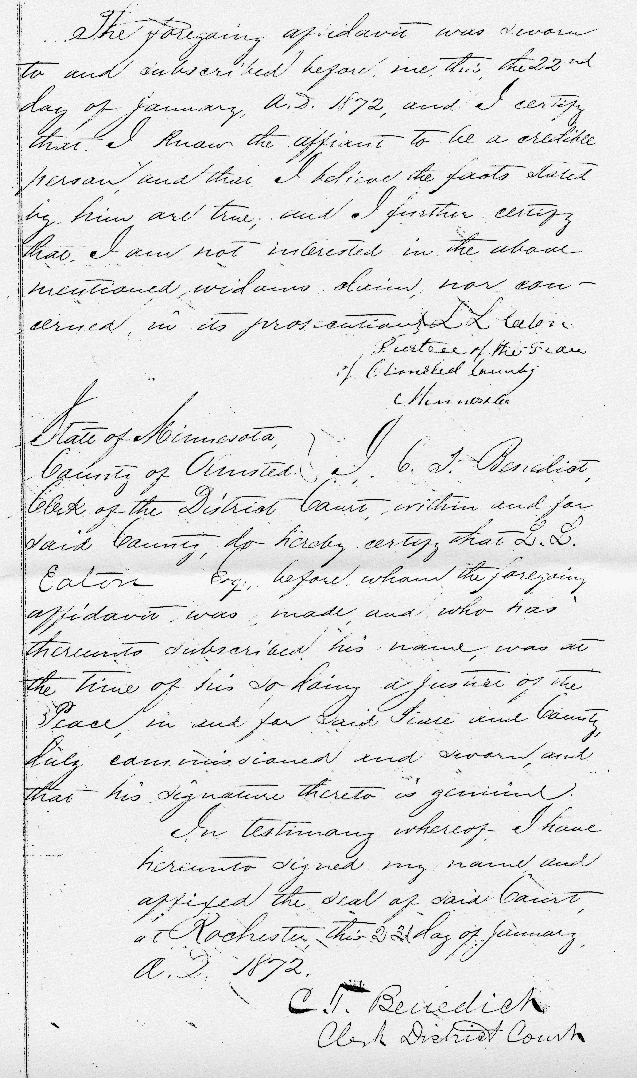 The foregoing affidavit was sworn
to and subscribed before me, this, the 22nd
day of January, A.D. 1872, and I certify
that I know the affiant to be a credible
person, and that I believe the facts stated
by him are true, and I further certify
that I am not interested in the above
mentioned widows claim, nor con-
cerned, in its prosecution L L Eaton
Justice of the Peace
of Olmsted County
Minnesota
State of Minnesota,
County of Olmsted. I, C. T. Benedict,
Clerk of the District Court, within and for
said County, do hereby certify that L. L.
Eaton Esq., before whom the foregoing
affidavit was made, and who has
thereunto subscribed his name, was at
the time of his so doing a justice of the
Peace, in and for said State and County,
duly commissioned and sworn, and
that his signature thereto is genuine.
In testimony whereof I have
hereunto signed my name and
affixed the seal of said Court,
at Rochester, this day of January,
A.D. 1872.
C. T. Benedict
Clerk District Court